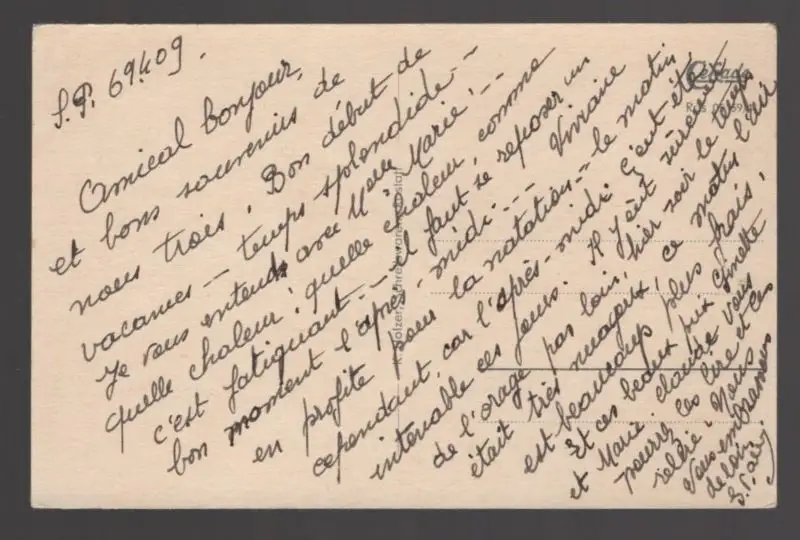 S.P. 69.409.
Amical bonjour,
et bons souvenirs de
nous trois. Bon début de
vacances - temps splendide --
Je vous entends avec Melle Marie!..
quelle chaleur! quelle chaleur, comme
c'est fatiguant -- Il faut se reposer un
bon moment l'après-midi... Viviane
en profite pour la natation - le matin
cependant, car l'après-midi c'eut été
intenable ces jours. Il y eut sûrement
de l'orage pas loin, hier soir le temps
était très nuageux, ce matin l'air
est beaucoup plus frais.
Et ces beaux prix Ginette
et Marie-Claude vous
pourrez les lire et les
relire. Nous
vous embrassons
de loin
Cekade